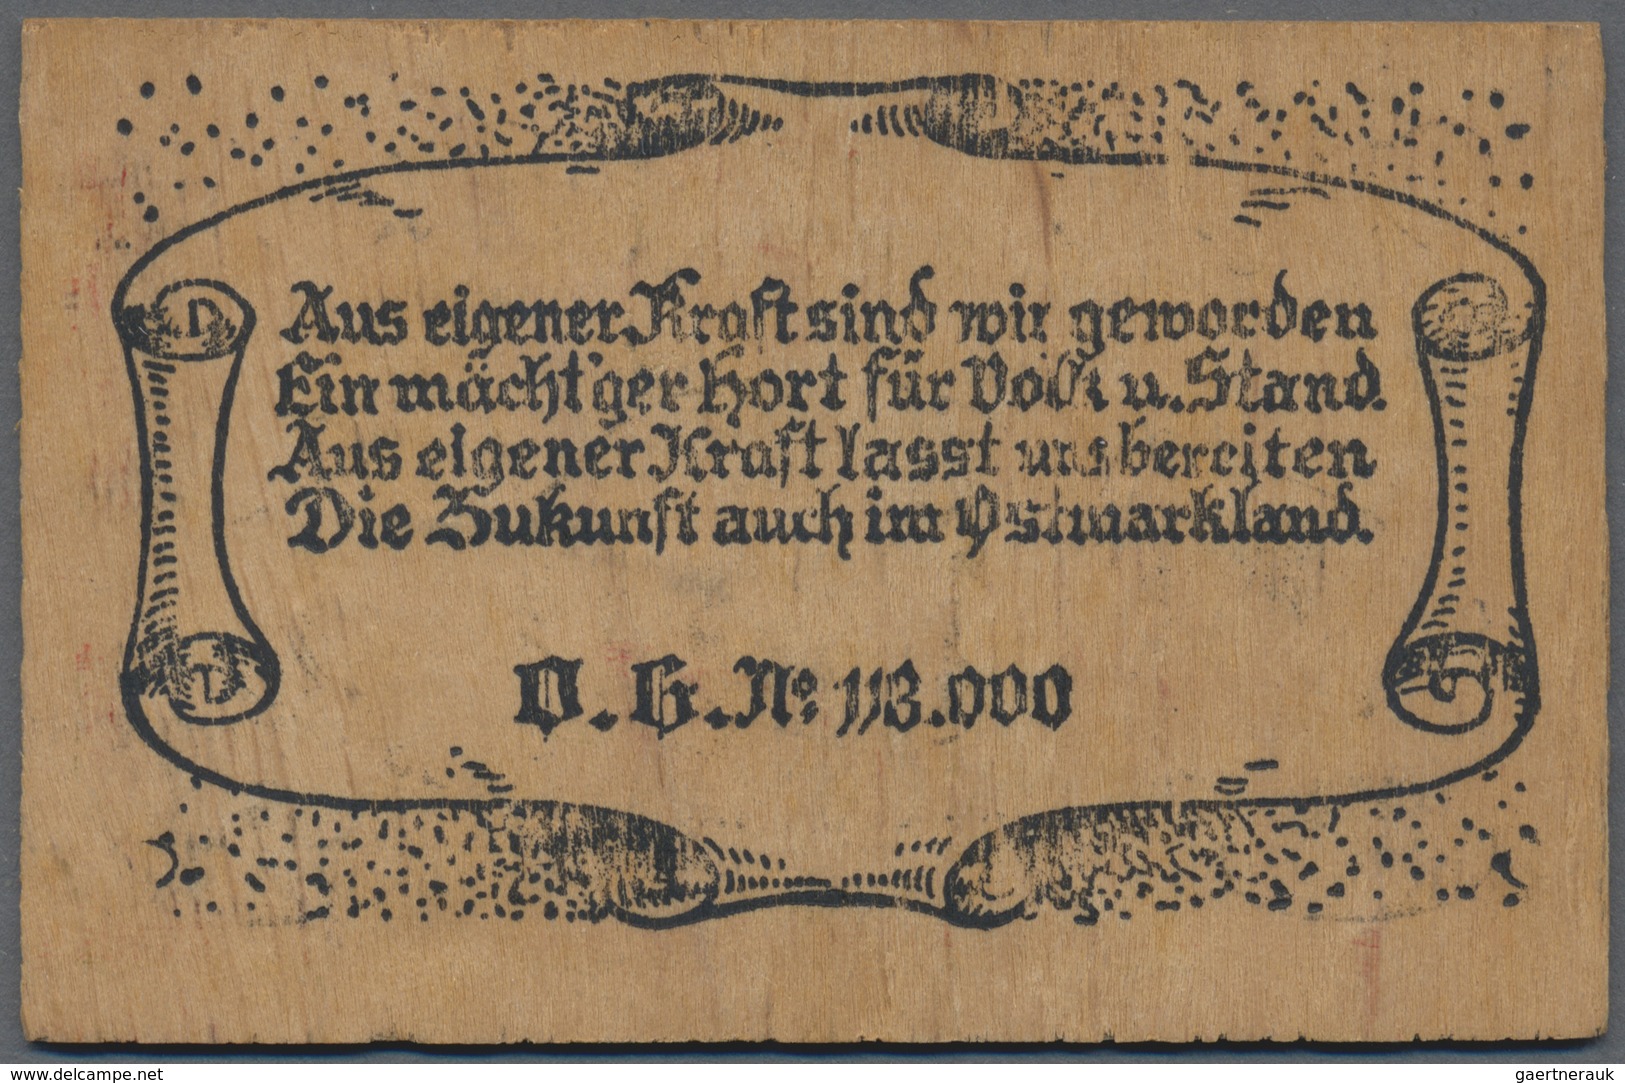 Aus eigener Kraft sind wir geworden
Ein mächt'ger Hort für Volk u. Stand.
Aus eigener Kraft lasst uns bereiten
Die Zukunft auch im Ostmarkland.
O. G. No 113.000
www.delcampe.net
gaertnerauk